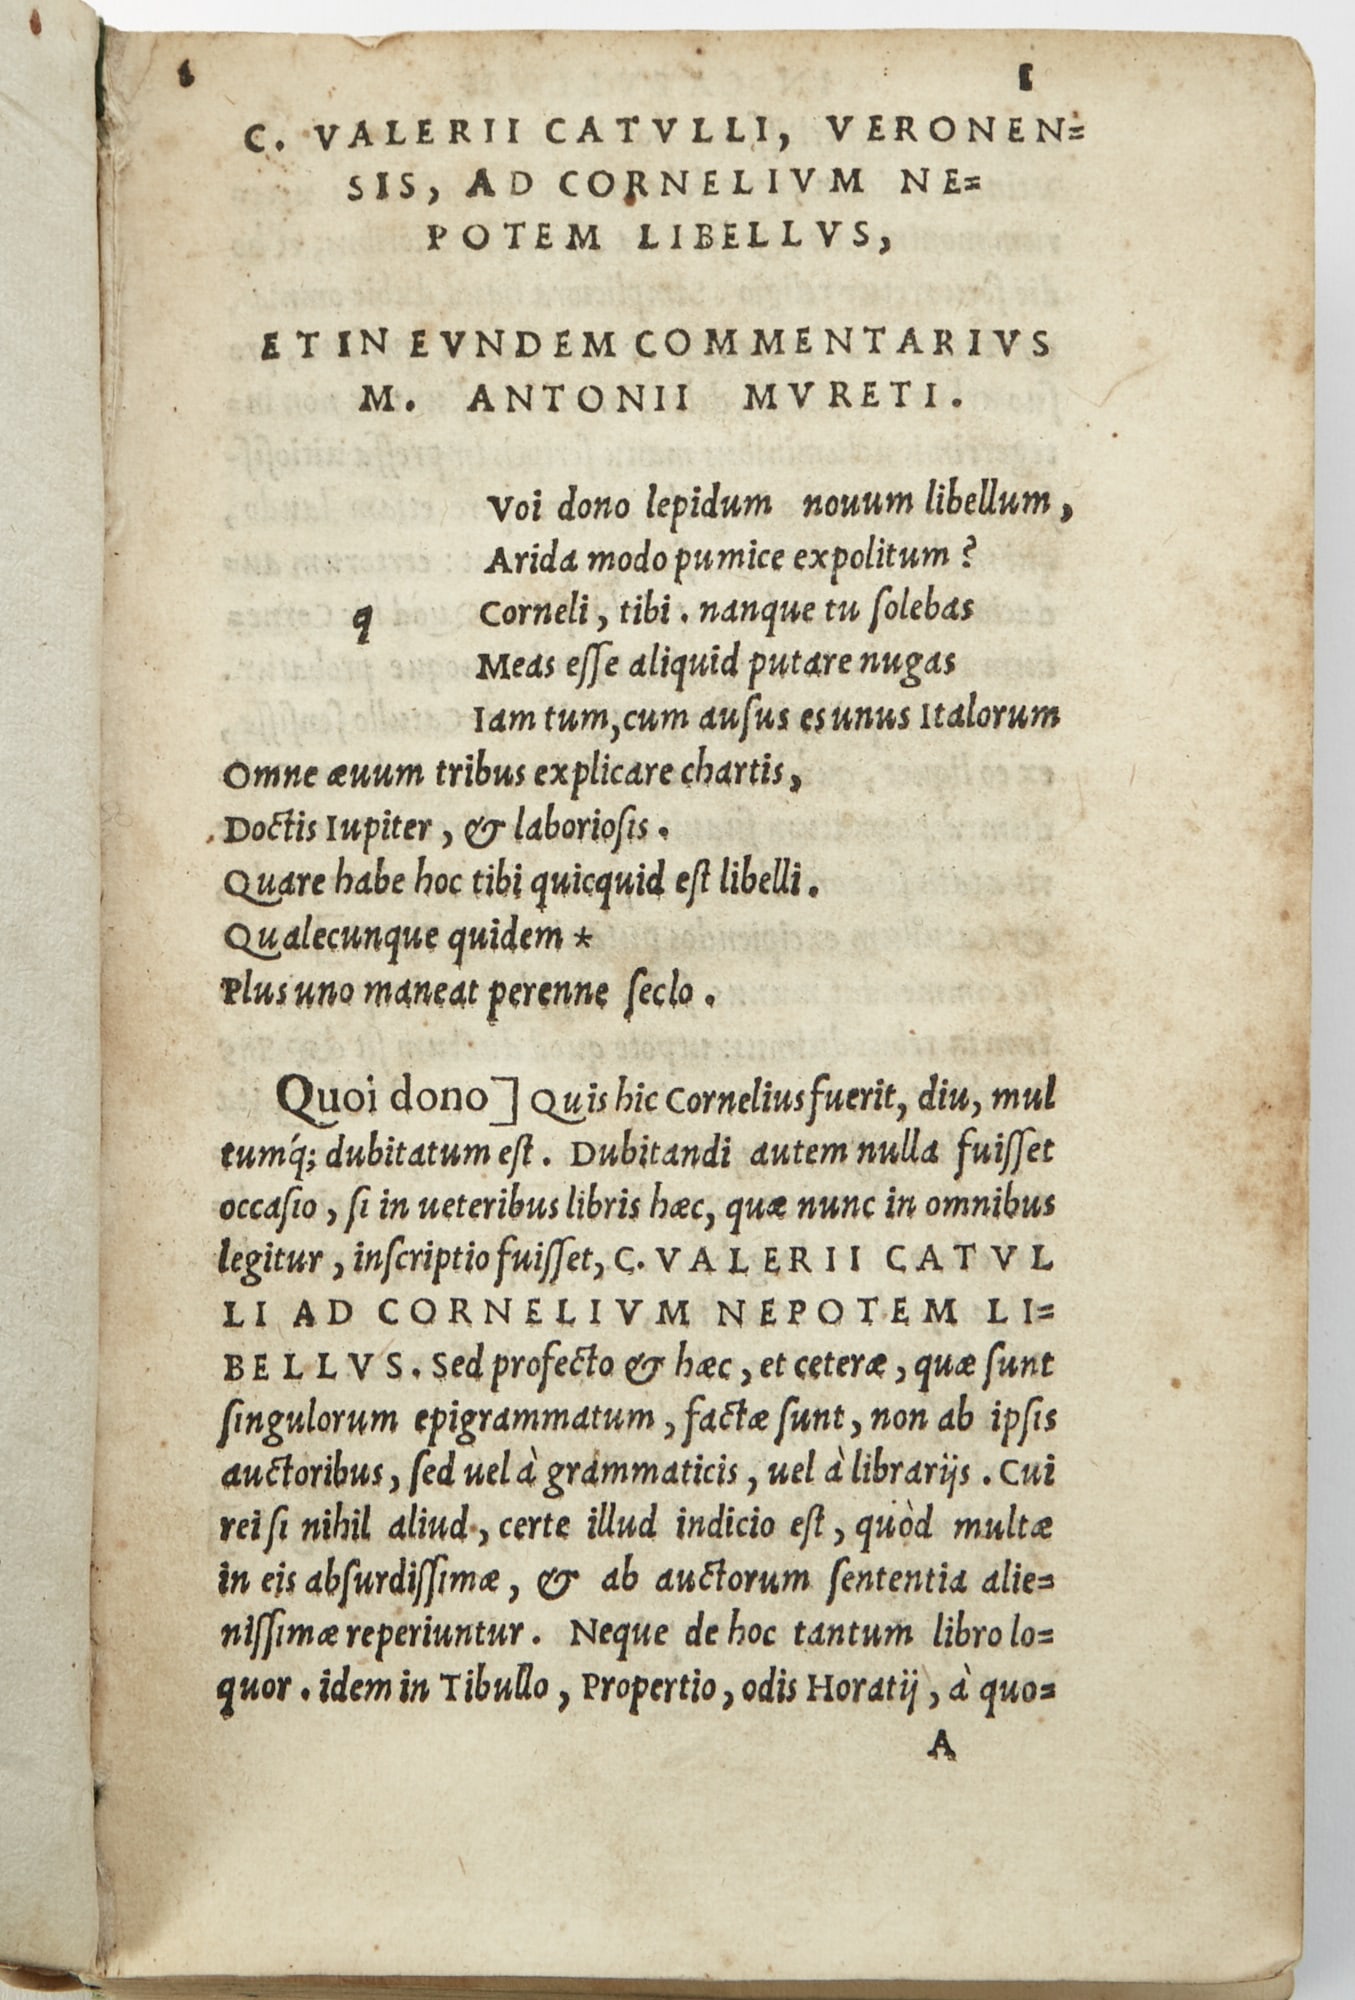 I
C. VALERII CATVLLI, VERONEN=
SIS, AD CORNELIVM NE=
POTEM LIBELLVS,
ET IN EVNDEM COMMENTARIVS
M. ANTONII MVRETI.
Voi dono lepidum nouum libellum,
Arida modo pumice expolitum?
q Corneli, tibi. nanque tu ſolebas
Meas eſſe aliquid putare nugas
Iam tum, cum auſus es unus Italorum
Omne æuum tribus explicare chartis,
Doctis Iupiter, & laborioſis.
Quare habe hoc tibi quicquid eſt libelli.
Qualecunque quidem *
Plus uno maneat perenne ſeclo.
Quoi dono] Quis hic Cornelius fuerit, diu, mul
tumq́; dubitatum eſt. Dubitandi autem nulla fuiſſet
occaſio, ſi in ueteribus libris hæc, quæ nunc in omnibus
legitur, inſcriptio fuiſſet, C. VALERII CATVL
LI AD CORNELIVM NEPOTEM LI=
BELLVS. Sed profecto & hæc, et ceteræ, quæ ſunt
ſingulorum epigrammatum, factæ ſunt, non ab ipſis
auctoribus, ſed uel à grammaticis, uel à librarijs. Cui
rei ſi nihil aliud, certe illud indicio eſt, quòd multæ
in eis abſurdiſſimæ, & ab auctorum ſententia alie=
niſſimæ reperiuntur. Neque de hoc tantum libro lo=
quor. idem in Tibullo, Propertio, odis Horatij, à quo=
A